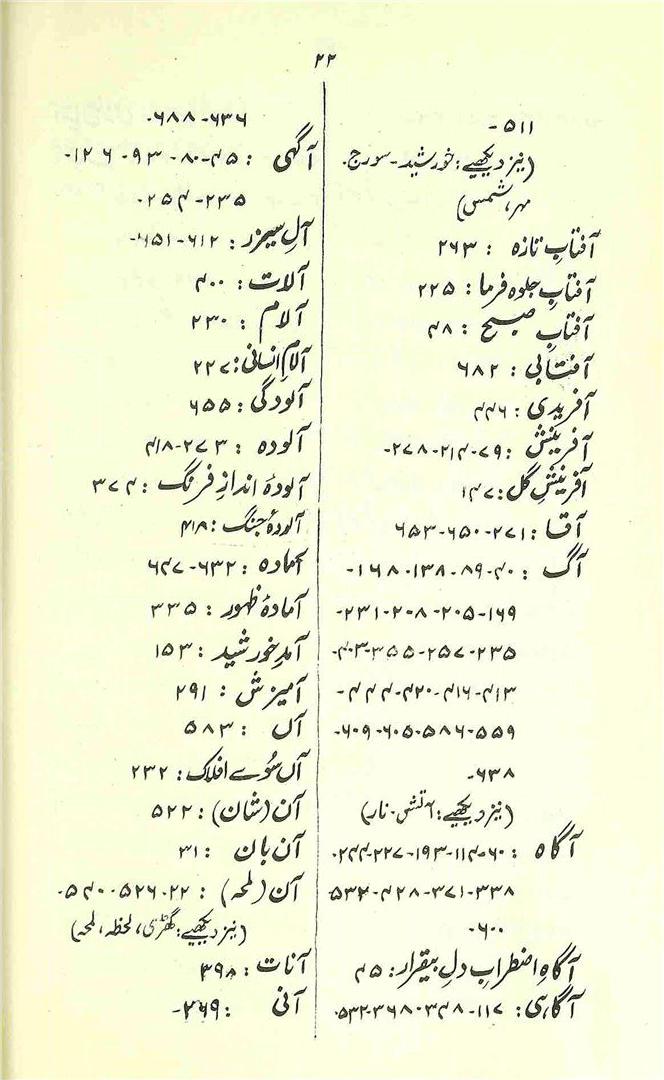 ۲۲
۵۱۱-
(نیز دیکھیے: خورشید-سورج-
مہر، شمس)
آفتابِ تازہ : ۲۶۳
آفتابِ جلوہ فرما : ۲۲۵
آفتابِ صبح : ۴۸
آفتابی : ۶۸۲
آفریدی : ۴۴۶
آفرینش : ۷۹-۲۱۴-۲۷۸-
آفرینشِ گل : ۱۴۷
آقا : ۲۷۱-۶۵۰-۶۵۳
آگ : ۴۰-۸۹-۱۳۸-۱۶۸-
۱۶۹-۲۰۵-۲۰۸-۲۳۱-
۲۳۵-۲۵۷-۳۵۵-۴۰۳-
۴۱۳-۴۱۶-۴۲۰-۴۴۴-
۵۵۹-۵۸۶-۶۰۵-۶۰۹-
۶۳۸-
(نیز دیکھیے: آتش-نار)
آگاہ : ۶۰-۱۱۴-۱۹۳-۲۲۷-۲۴۴-
۳۳۸-۳۷۱-۴۲۸-۵۳۲
۶۰۰-
آگاہِ اضطرابِ دلِ بیقرار : ۴۵
آگاہی : ۱۱۷-۳۴۸-۳۶۸-۵۳۲-
۶۳۶-۶۸۸-
آگہی : ۴۵-۸۰-۹۳-۱۲۶-
۲۳۵-۲۵۴-
آلِ سیزر : ۶۱۲-۶۵۱-
آلات : ۴۰۰
آلام : ۲۳۰
آلامِ انسانی : ۲۲۷
آلودگی : ۶۵۵
آلودہ : ۲۷۳-۴۱۸
آلودۂ اندازِ فرنگ : ۳۷۴
آلودۂ جنگ : ۴۱۸
آمادہ : ۶۳۲-۶۴۷
آمادۂ ظہور : ۳۳۵
آمدِ خورشید : ۱۵۳
آمیزش : ۲۹۱
آں : ۵۸۳
آں سُوے افلاک : ۲۳۲
آن (شان) : ۵۲۲
آن بان : ۳۱
آن (لمحہ) : ۲۲-۵۲۶-۵۴۰-
(نیز دیکھیے: گھڑی، لحظہ، لمحہ)
آنات : ۳۹۸
آنی : ۲۶۹-